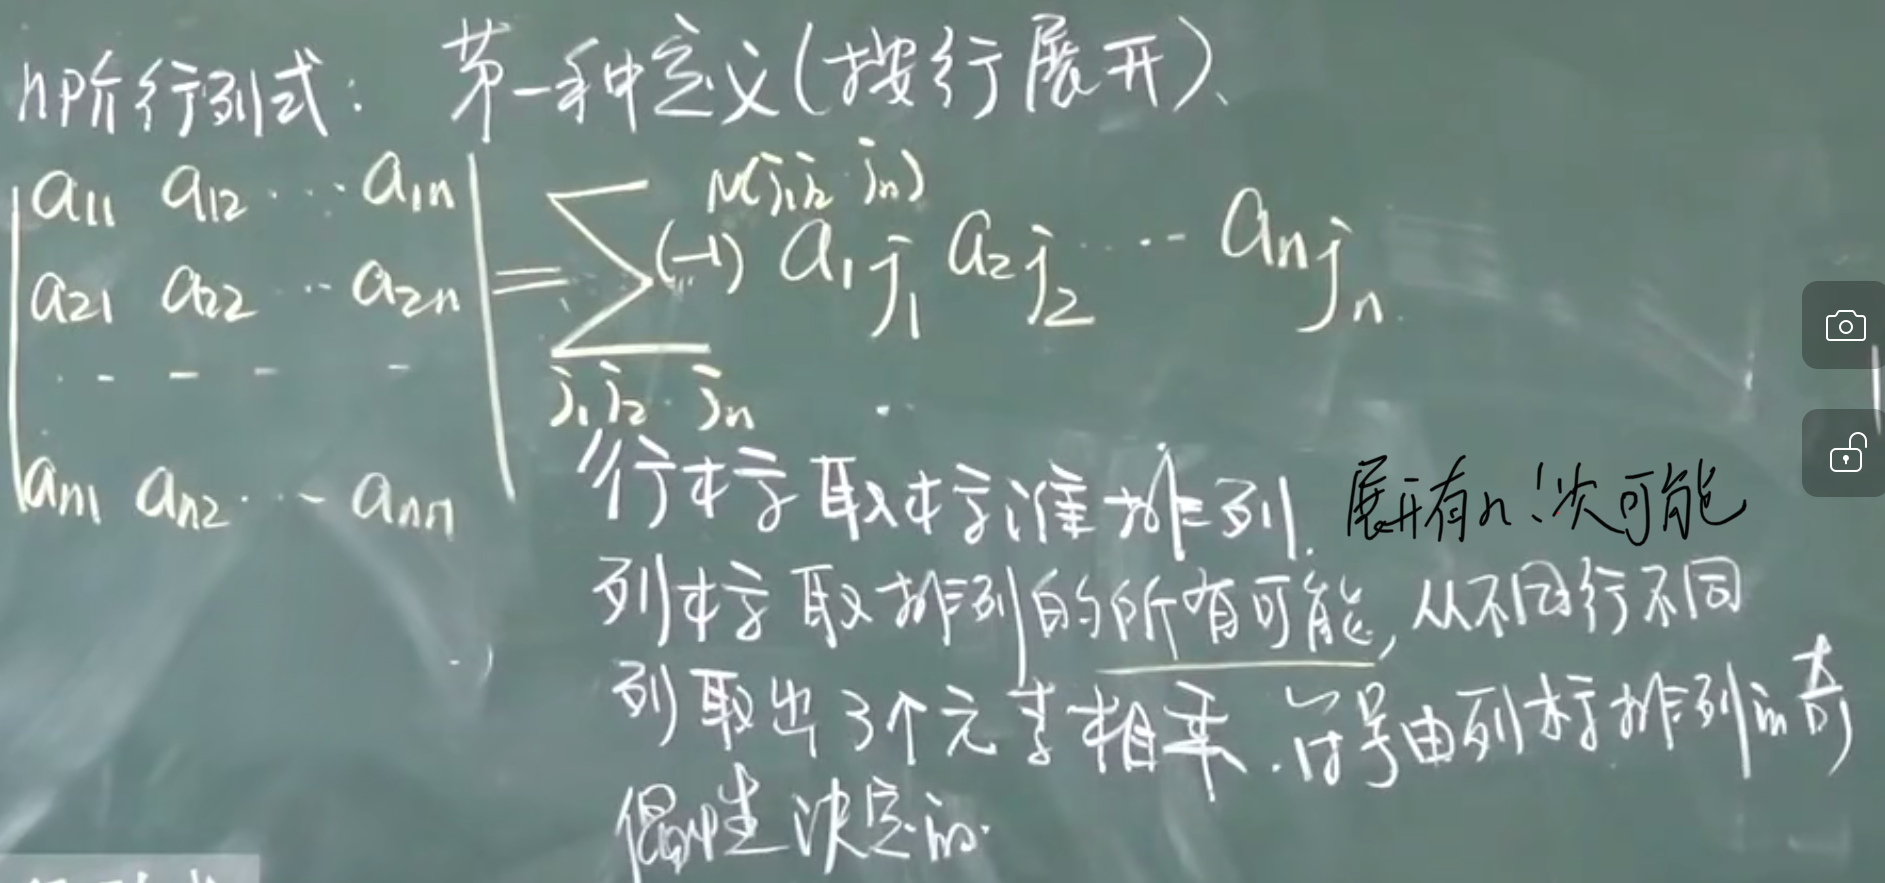 n阶行列式: 第一种定义(按行展开)、
a11 a12 ... a1n
a21 a22 ... a2n
. - - - -
an1 an2 ... ann
= ∑ (-1)^N(j1j2...jn) a1j1 a2j2 ... anjn
j1j2...jn
行标取标准排列. 展开有n!次可能
列标取排列的所有可能, 从不同行不同
列取出3个元素相乘. 符号由列标排列的奇
偶性决定的.